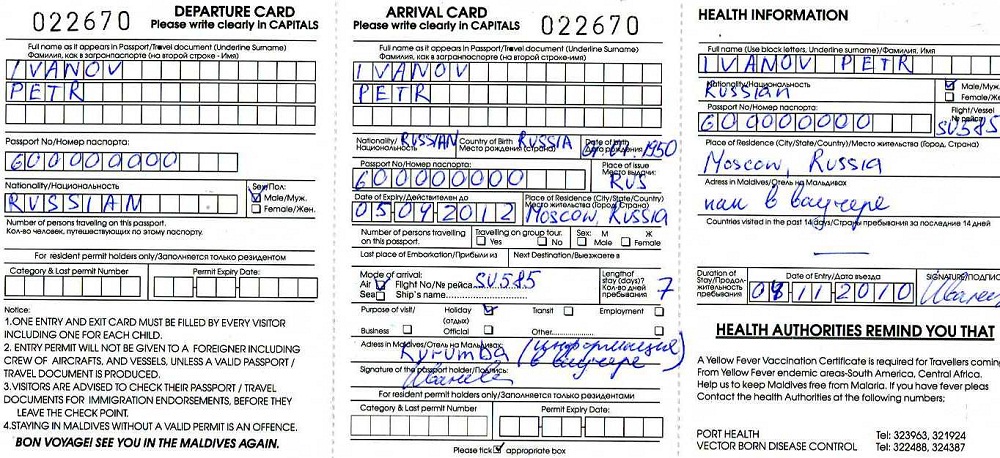 022670
DEPARTURE CARD
Please write clearly in CAPITALS
Full name as it appears in Passport/Travel document (Underline Surname)
Фамилия, как в загранпаспорте (на второй строке - Имя)
IVANOV
PETR
Passport No/Номер паспорта:
600000000
Nationality/Национальность
RUSSIAN
Sex/Пол:
Male/Муж.
Female/Жен.
Number of persons traveling on this passport.
Кол-во человек, путешествующих по этому паспорту.
For resident permit holders only/Заполняется только резидентом
Category & Last permit Number
Permit Expiry Date:
Notice:
1.ONE ENTRY AND EXIT CARD MUST BE FILLED BY EVERY VISITOR
INCLUDING ONE FOR EACH CHILD.
2. ENTRY PERMIT WILL NOT BE GIVEN TO A FOREIGNER INCLUDING
CREW OF AIRCRAFTS, AND VESSELS, UNLESS A VALID PASSPORT /
TRAVEL DOCUMENT IS PRODUCED.
3.VISITORS ARE ADVISED TO CHECK THEIR PASSPORT / TRAVEL
DOCUMENTS FOR IMMIGRATION ENDORSEMENTS, BEFORE THEY
LEAVE THE CHECK POINT.
4.STAYING IN MALDIVES WITHOUT A VALID PERMIT IS AN OFFENCE.
BON VOYAGE! SEE YOU IN THE MALDIVES AGAIN.
ARRIVAL CARD
Please write clearly in CAPITALS
022670
Full name as it appears in Passport/Travel document (Underline Surname)
Фамилия, как в загранпаспорте (на второй строке-имя)
IVANOV
PETR
Nationality/
Национальность
RUSSIAN
Country of Birth
Место рождения (страна)
RUSSIA
Date of birth
Дата рождения
1950
Passport No/Номер паспорта:
600000000
Place of issue
Место выдачи:
RUS
Date of Expiry/Действителен до
05042012
Place of Residence (City/State/Country)
Место жительства (Город, Страна)
Moscow, RUSSIA
Number of persons travelling
on this passport.
Travelling on group tour.
Yes
No
Sex:
М
Male
Ж
Female
Last place of Embarkation/Прибыли из
Next Destination/Выезжаете в
Mode of arrival:
Air
Flight No/№ рейса
SU585
Sea
Ship's name
Length of
stay (days)?
Кол-во дней
пребывания
7
Purpose of visit/
Holiday
(отдых)
Transit
Employment
Business
Official
Other
Adress in Maldives/Отель на Мальдивах:
Kurumba (информация
в ваучере)
Signature of the passport holder/Подпись:
For resident permit holders only/Заполняется только резидентами
Category & Last permit Number
Permit Expiry Date:
Please tick appropriate box
HEALTH INFORMATION
Full name (Use block letters, Underline surname)/Фамилия, Имя
IVANOV PETR
Nationality/Национальность
Russian
Male/Муж.
Female/Же
Passport No/Номер паспорта:
600000000
Flight/Vessel
№ рейса
SU585
Place of Residence (City/State/Country)/Место жительства (Город, Страна)
Moscow, RUSSIA
Adress in Maldives/Отель на Мальдивах
как в ваучере
Countries visited in the past 14 days/Страны пребывания за последние 14 дней
Duration of
Stay/Продол-
жительность
пребывания
Date of Entry/Дата въезда
08112010
SIGNATURE/ПОДПИС
HEALTH AUTHORITIES REMIND YOU THAT
A Yellow Fever Vaccination Certificate is required for Travellers coming
From Yellow Fever endemic areas-South America, Central Africa.
Help us to keep Maldives free from Malaria. If you have fever pleas
Contact the health Authorities at the following numbers;
PORT HEALTH Tel: 323963, 321924
VECTOR BORN DISEASE CONTROL Tel: 322488, 324387